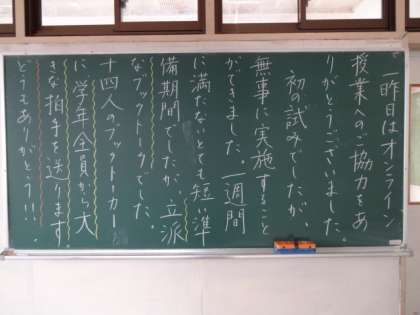 一昨日はオンライン
授業へのご協力をあ
りがとうございました。
初の試みでしたが、
無事に実施すること
ができました。一週間
に満たないとても短い準
備期間でしたが、立派
なブックトークでした。
十四人のブックトーカー
に学年全員から大
きな拍手を送ります。
どうもありがとう!!